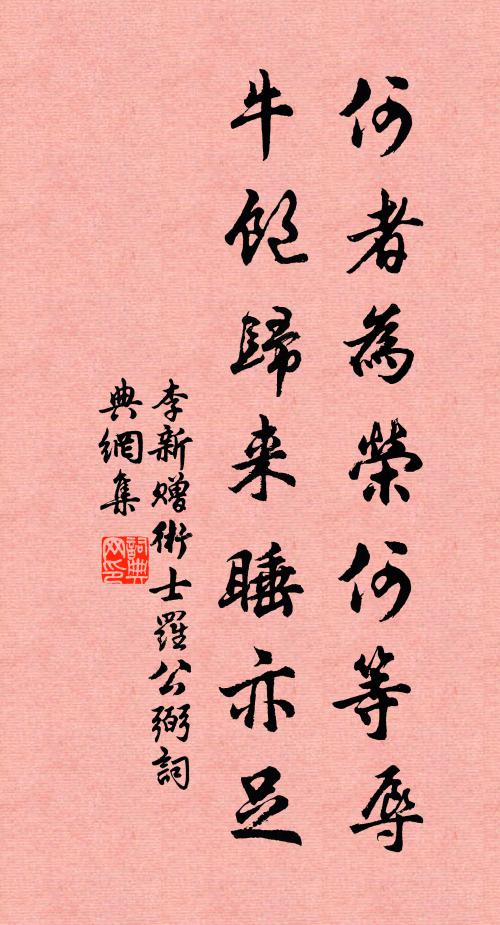 何者為榮何等辱
牛飽歸来睡亦足
李新贈術士羅公弼詞
典網集
詞典網印